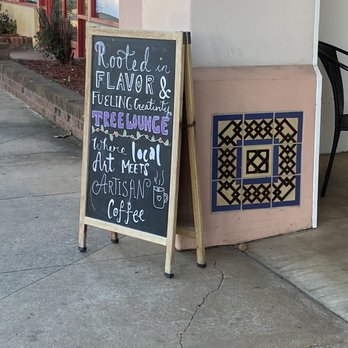 Rooted in
FLAVOR &
FUELING Creativity
TREE LOUNGE
Where local
Art MEETS
ARTISAN
Coffee